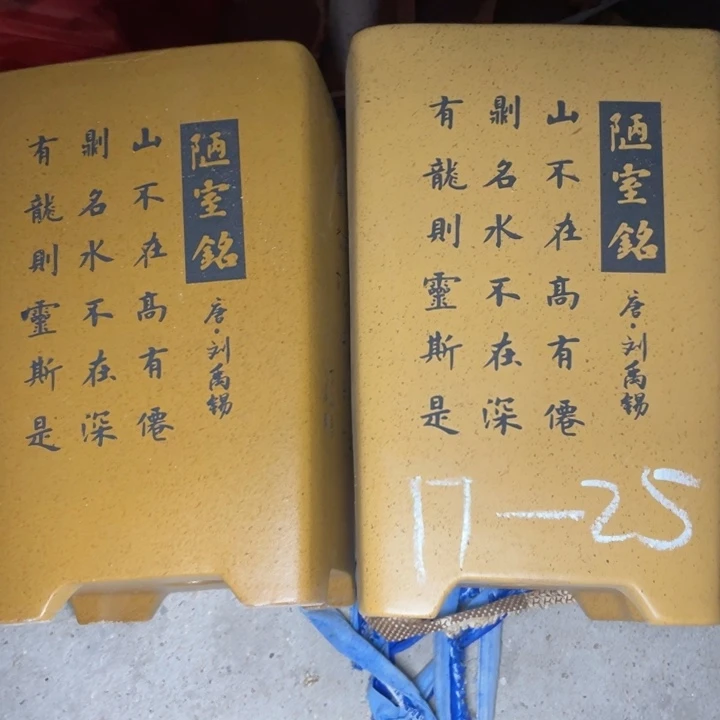 陋室銘
唐·刘禹錫
山不在髙有僊
𠟭名水不在深
有龍則靈斯是
陋室銘
唐·刘禹錫
山不在髙有僊
𠟭名水不在深
有龍則靈斯是
17—25